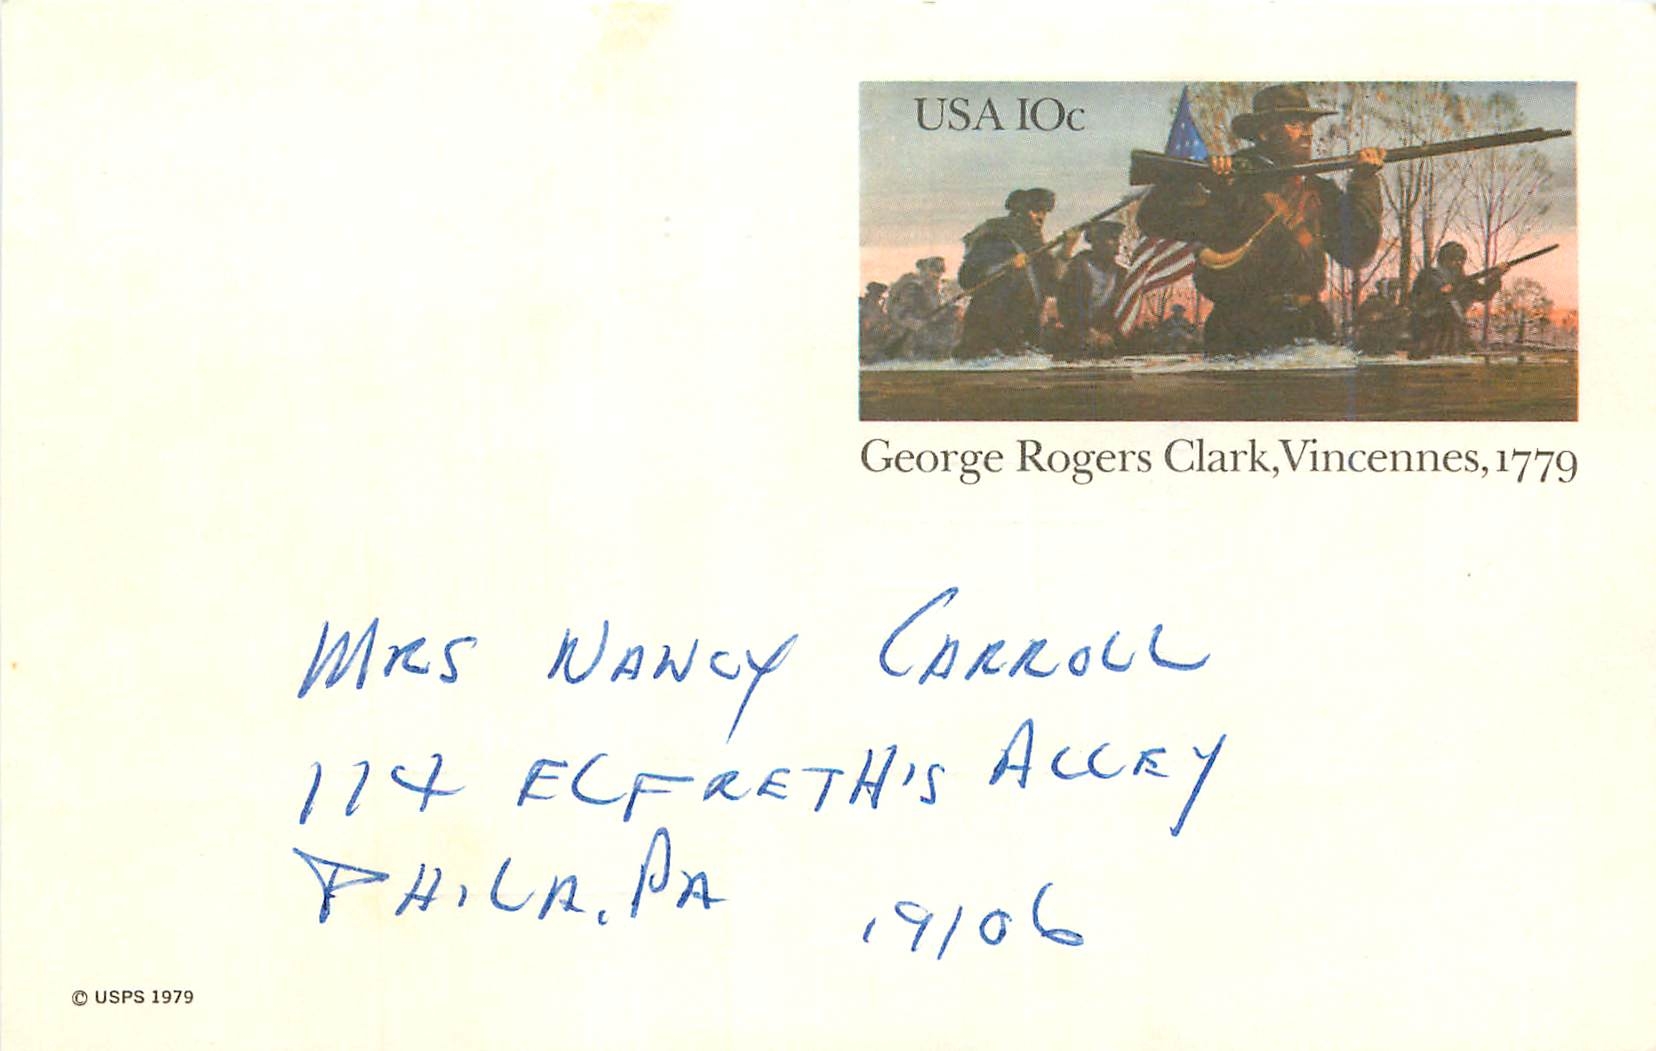 USA 10c
George Rogers Clark, Vincennes, 1779
MRS NANCY CARROLL
114 ELFRETH'S ALLEY
PHILA. PA 19106
© USPS 1979